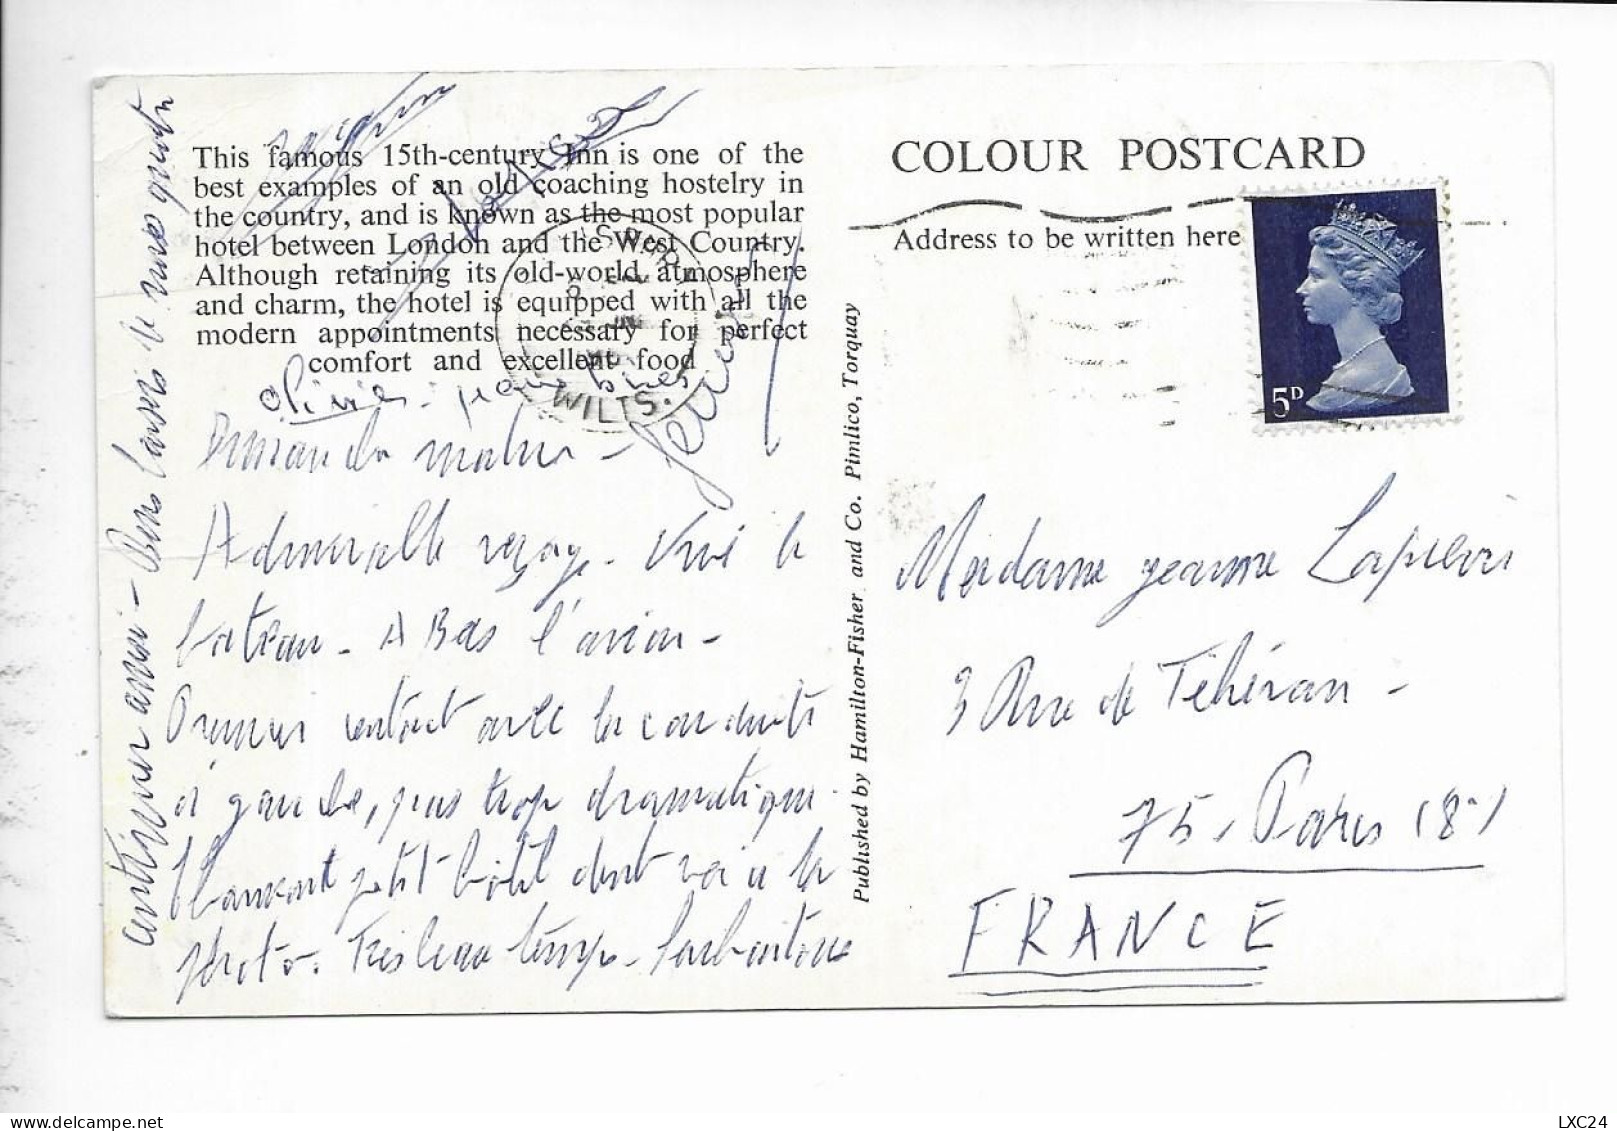 This famous 15th-century Inn is one of the
best examples of an old coaching hostelry in
the country, and is known as the most popular
hotel between London and the West Country.
Although retaining its old-world atmosphere
and charm, the hotel is equipped with all the
modern appointments necessary for perfect
comfort and excellent food
WILTS.
Dimanche matin -
Admirable voyage. Vive le
bateau - A Bas l'avion -
Premier contact avec la conduite
à gauche, pas trop dramatique.
petit hotel dont voici la
photo. Très beau temps -
Published by Hamilton-Fisher and Co. Pimlico, Torquay
COLOUR POSTCARD
Address to be written here
5D
Madame Jeanne
3 Rue de Téhéran -
75. Paris (8e)
FRANCE
LXC24